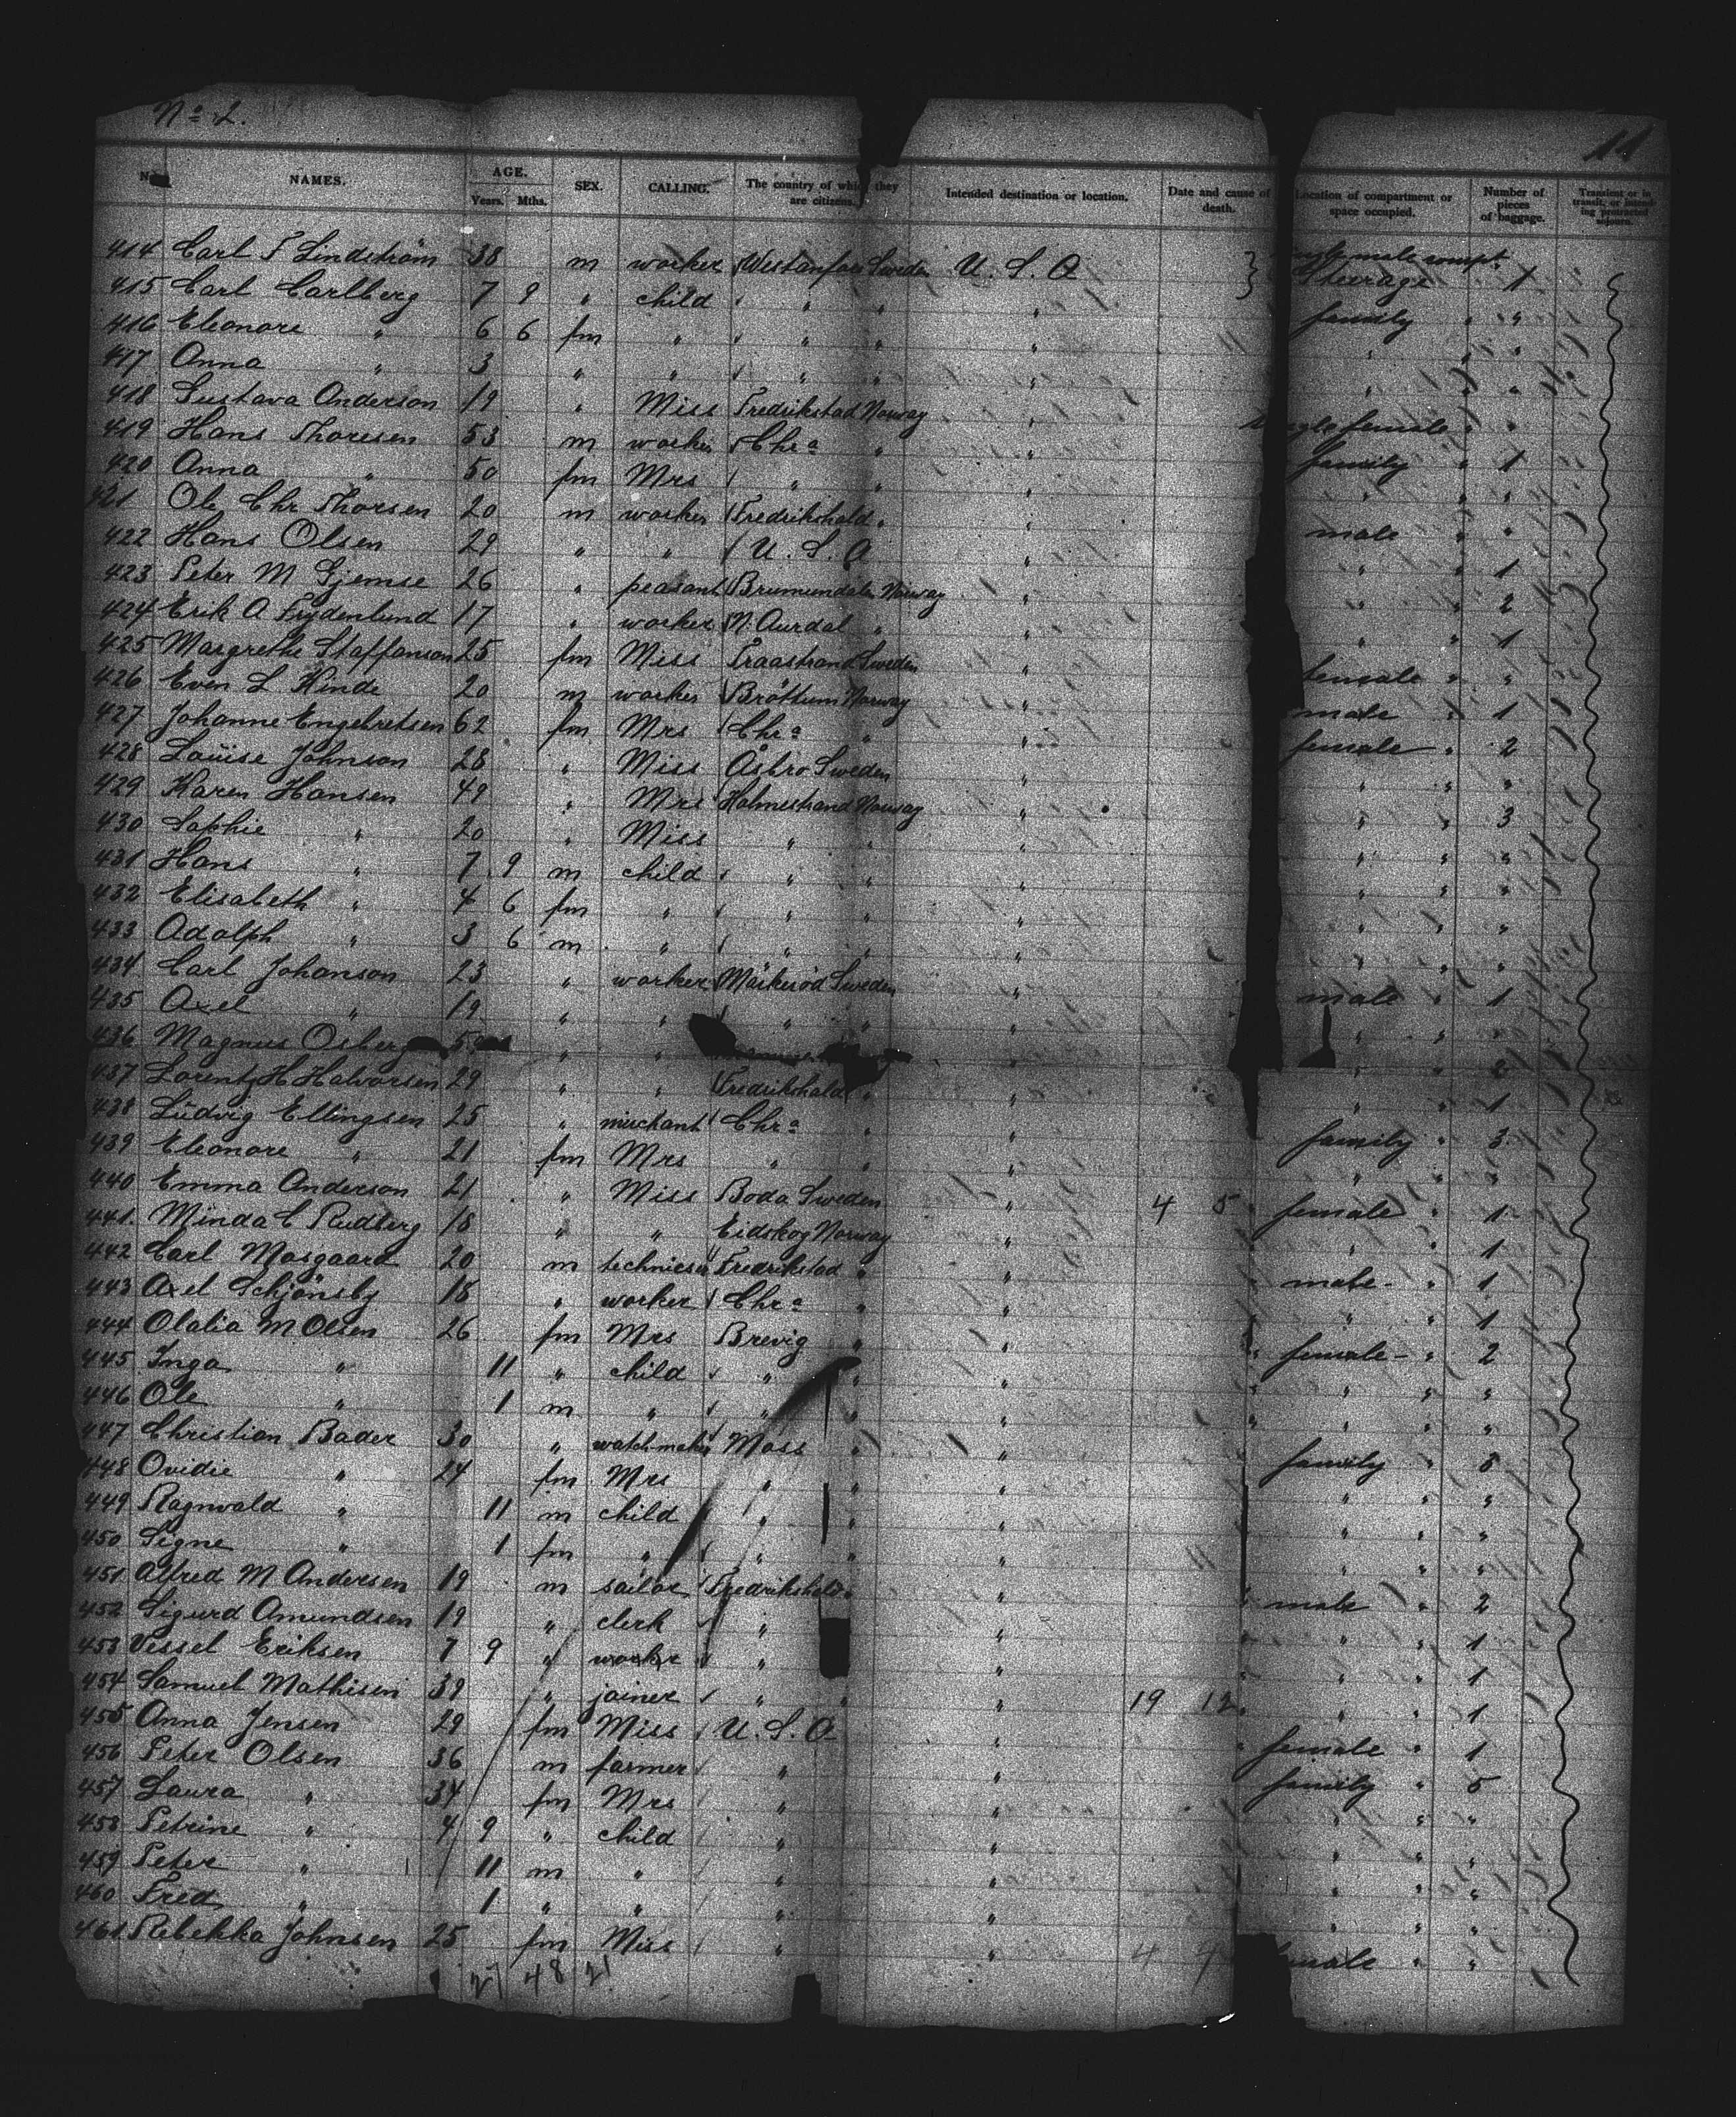 No 2.
11
NAMES. AGE. Years. Mths. SEX. CALLING. The country of which they are citizens. Intended destination or location. Date and cause of death. Location of compartment or space occupied. Number of pieces of baggage. Transient or in transit, or intending protracted sojourn.
414 Carl Lindström 38 m worker Sweden U. S. A. Steerage 1
415 Carl Carlberg 7 9 " child " " " family " "
416 Eleonore " 6 6 fm " " " " " " "
417 Anna " 3 " " " " " " " "
418 Gustava Anderson 19 " Miss Fredrikstad Norway " female " "
419 Hans Thoresen 53 m worker Chra " " family " 1
420 Anna " 50 fm Mrs " " " " " "
421 Ole Chr Thorsen 20 m worker Fredrikshald " " male " "
422 Hans Olsen 29 " " U. S. A " " " 1
423 Peter M Gjemse 26 " peasant Brumundalen Norway " " " 2
424 Erik A Frydenlund 17 " worker N. Aurdal " " " " 1
425 Margrethe Staffanson 25 fm Miss Sweden " female " "
426 Even L Hinde 20 m worker Bröttum Norway " male " 1
427 Johanne Engebretsen 62 fm Mrs Chra " " female " 2
428 Louise Johnson 28 " Miss Åsbro Sweden " " " "
429 Karen Hansen 49 " Mrs Holmestrand Norway " " " 3
430 Sophie " 20 " Miss " " " " " "
431 Hans " 7 9 m child " " " " " "
432 Elisabeth " 4 6 fm " " " " " " "
433 Adolph " 3 6 m " " " " " " "
434 Carl Johanson 23 " worker Sweden " male " 1
435 Axel " 19 " " " " " " "
436 Magnus " " " "
437 Lorentz H Halvorsen 29 " " Fredrikshald " " " " 1
438 Ludvig Ellingsen 25 " merchant Chra " " family " 3
439 Eleonore " 21 fm Mrs " " " " " "
440 Emma Anderson 21 " Miss Boda Sweden " 4 5 female " 1
441. Minda C Rudberg 18 " " Eidskog Norway " " " 1
442 Carl Mosgaard 20 m Fredrikstad " " male " 1
443 Axel Schjönsby 18 " worker Chra " " " " 1
444 Olalia M Olsen 26 fm Mrs Brevig " " female " 2
445 Inga " 11 " child " " " " " "
446 Ole " 1 m " " " " " " "
447 Christian Bader 30 " watchmaker Moss " " family "
448 Ovidie " 24 fm Mrs " " " " " "
449 Ragnvald " 11 m child " " " " " "
450 Signe " 1 fm " " " " " " "
451 Alfred M Andersen 19 m sailor Fredrikshald " " male " 2
452 Sigurd Amundsen 19 " clerk " " " " 1
453 Vessel Eriksen 7 9 " worker " " " " 1
454 Samuel Mathisen 39 " joiner " " " 19 12 " " 1
455 Anna Jensen 29 fm Miss U. S. A " female " 1
456 Peter Olsen 36 m farmer " " family " 5
457 Laura " 34 fm Mrs " " " " "
458 Petrine " 4 9 " child " " " " "
459 Peter " 11 m " " " " " "
460 Fred " 1 " " " " " " "
461 Rebekka Johnsen 25 fm Miss " " 4 female " "
27 48 21